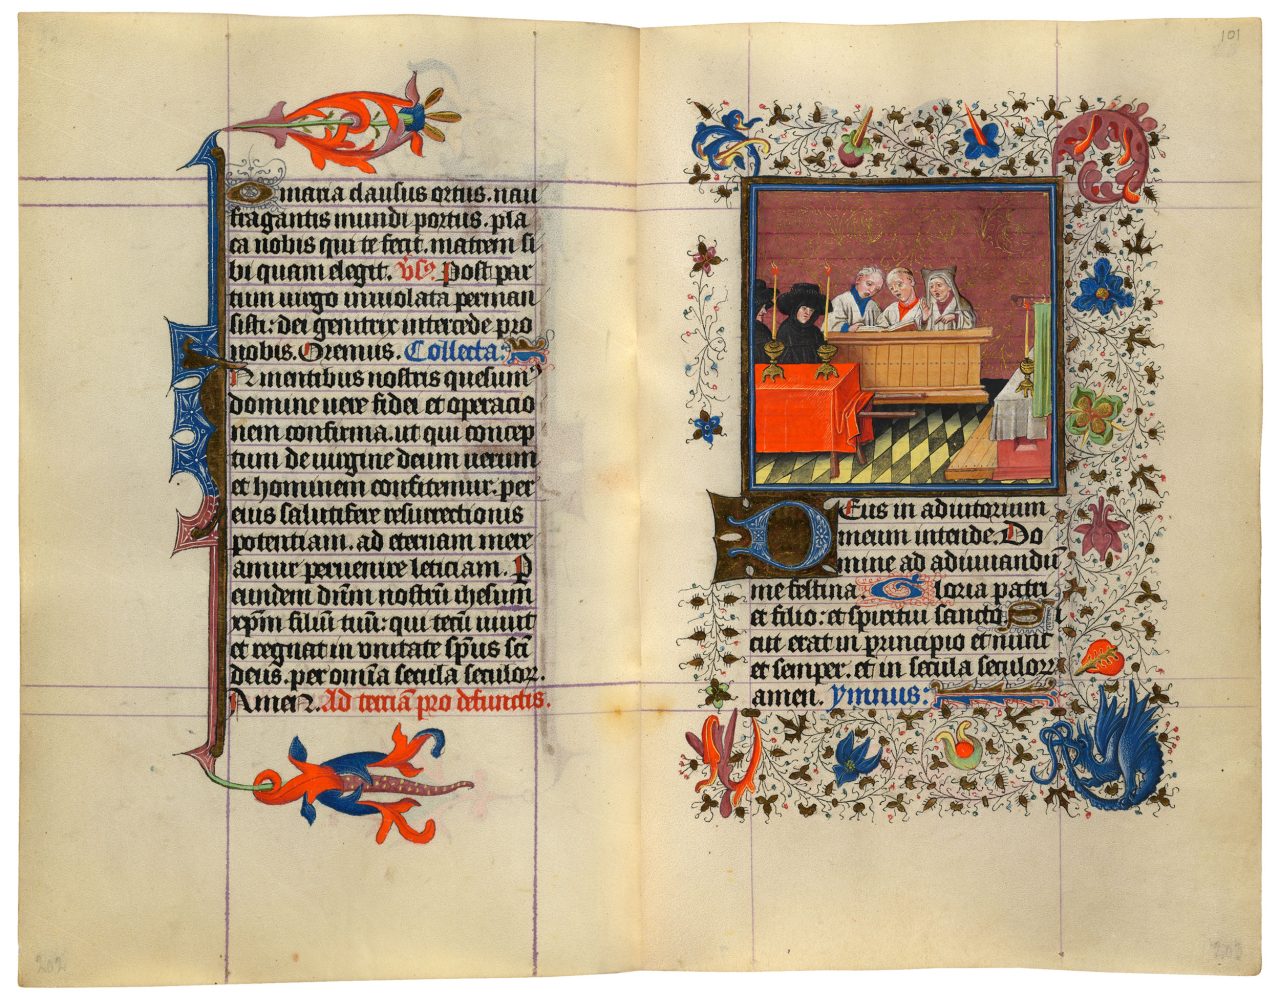 O maria clausus ortus. nau
fragantis mundi portus. pla
ca nobis qui te fecit. matrem si
bi quam elegit. Vsꝰ. Post par
tum uirgo inuiolata perman
sisti: dei genitrix intercede pro
nobis. Oremus. Collecta:
IN mentibus nostris quesum̄
domine uere fidei et operacio
nem confirma. ut qui concep
tum de uirgine deum uerum
et hominem confitemur. per
eius salutifere resurrectionis
potentiam. ad eternam mere
amur peruenire leticiam. P
eundem dn̄m nostrū ihesum
xp̄m filiū tuū: qui tecū uiuit
et regnat in vnitate sp̄us sc̄i
deus. per om̄ia secula seculoꝝ.
Amen. Ad terciā pro defunctis.
101
DEus in adiutorium
meum intende. Do
mine ad adiuuandū
me festina. Gloria patri
et filio: et spiritui sancto. Si
cut erat in principio et nunc
et semper. et in secula seculoꝝ
amen. ymnus:
202
203